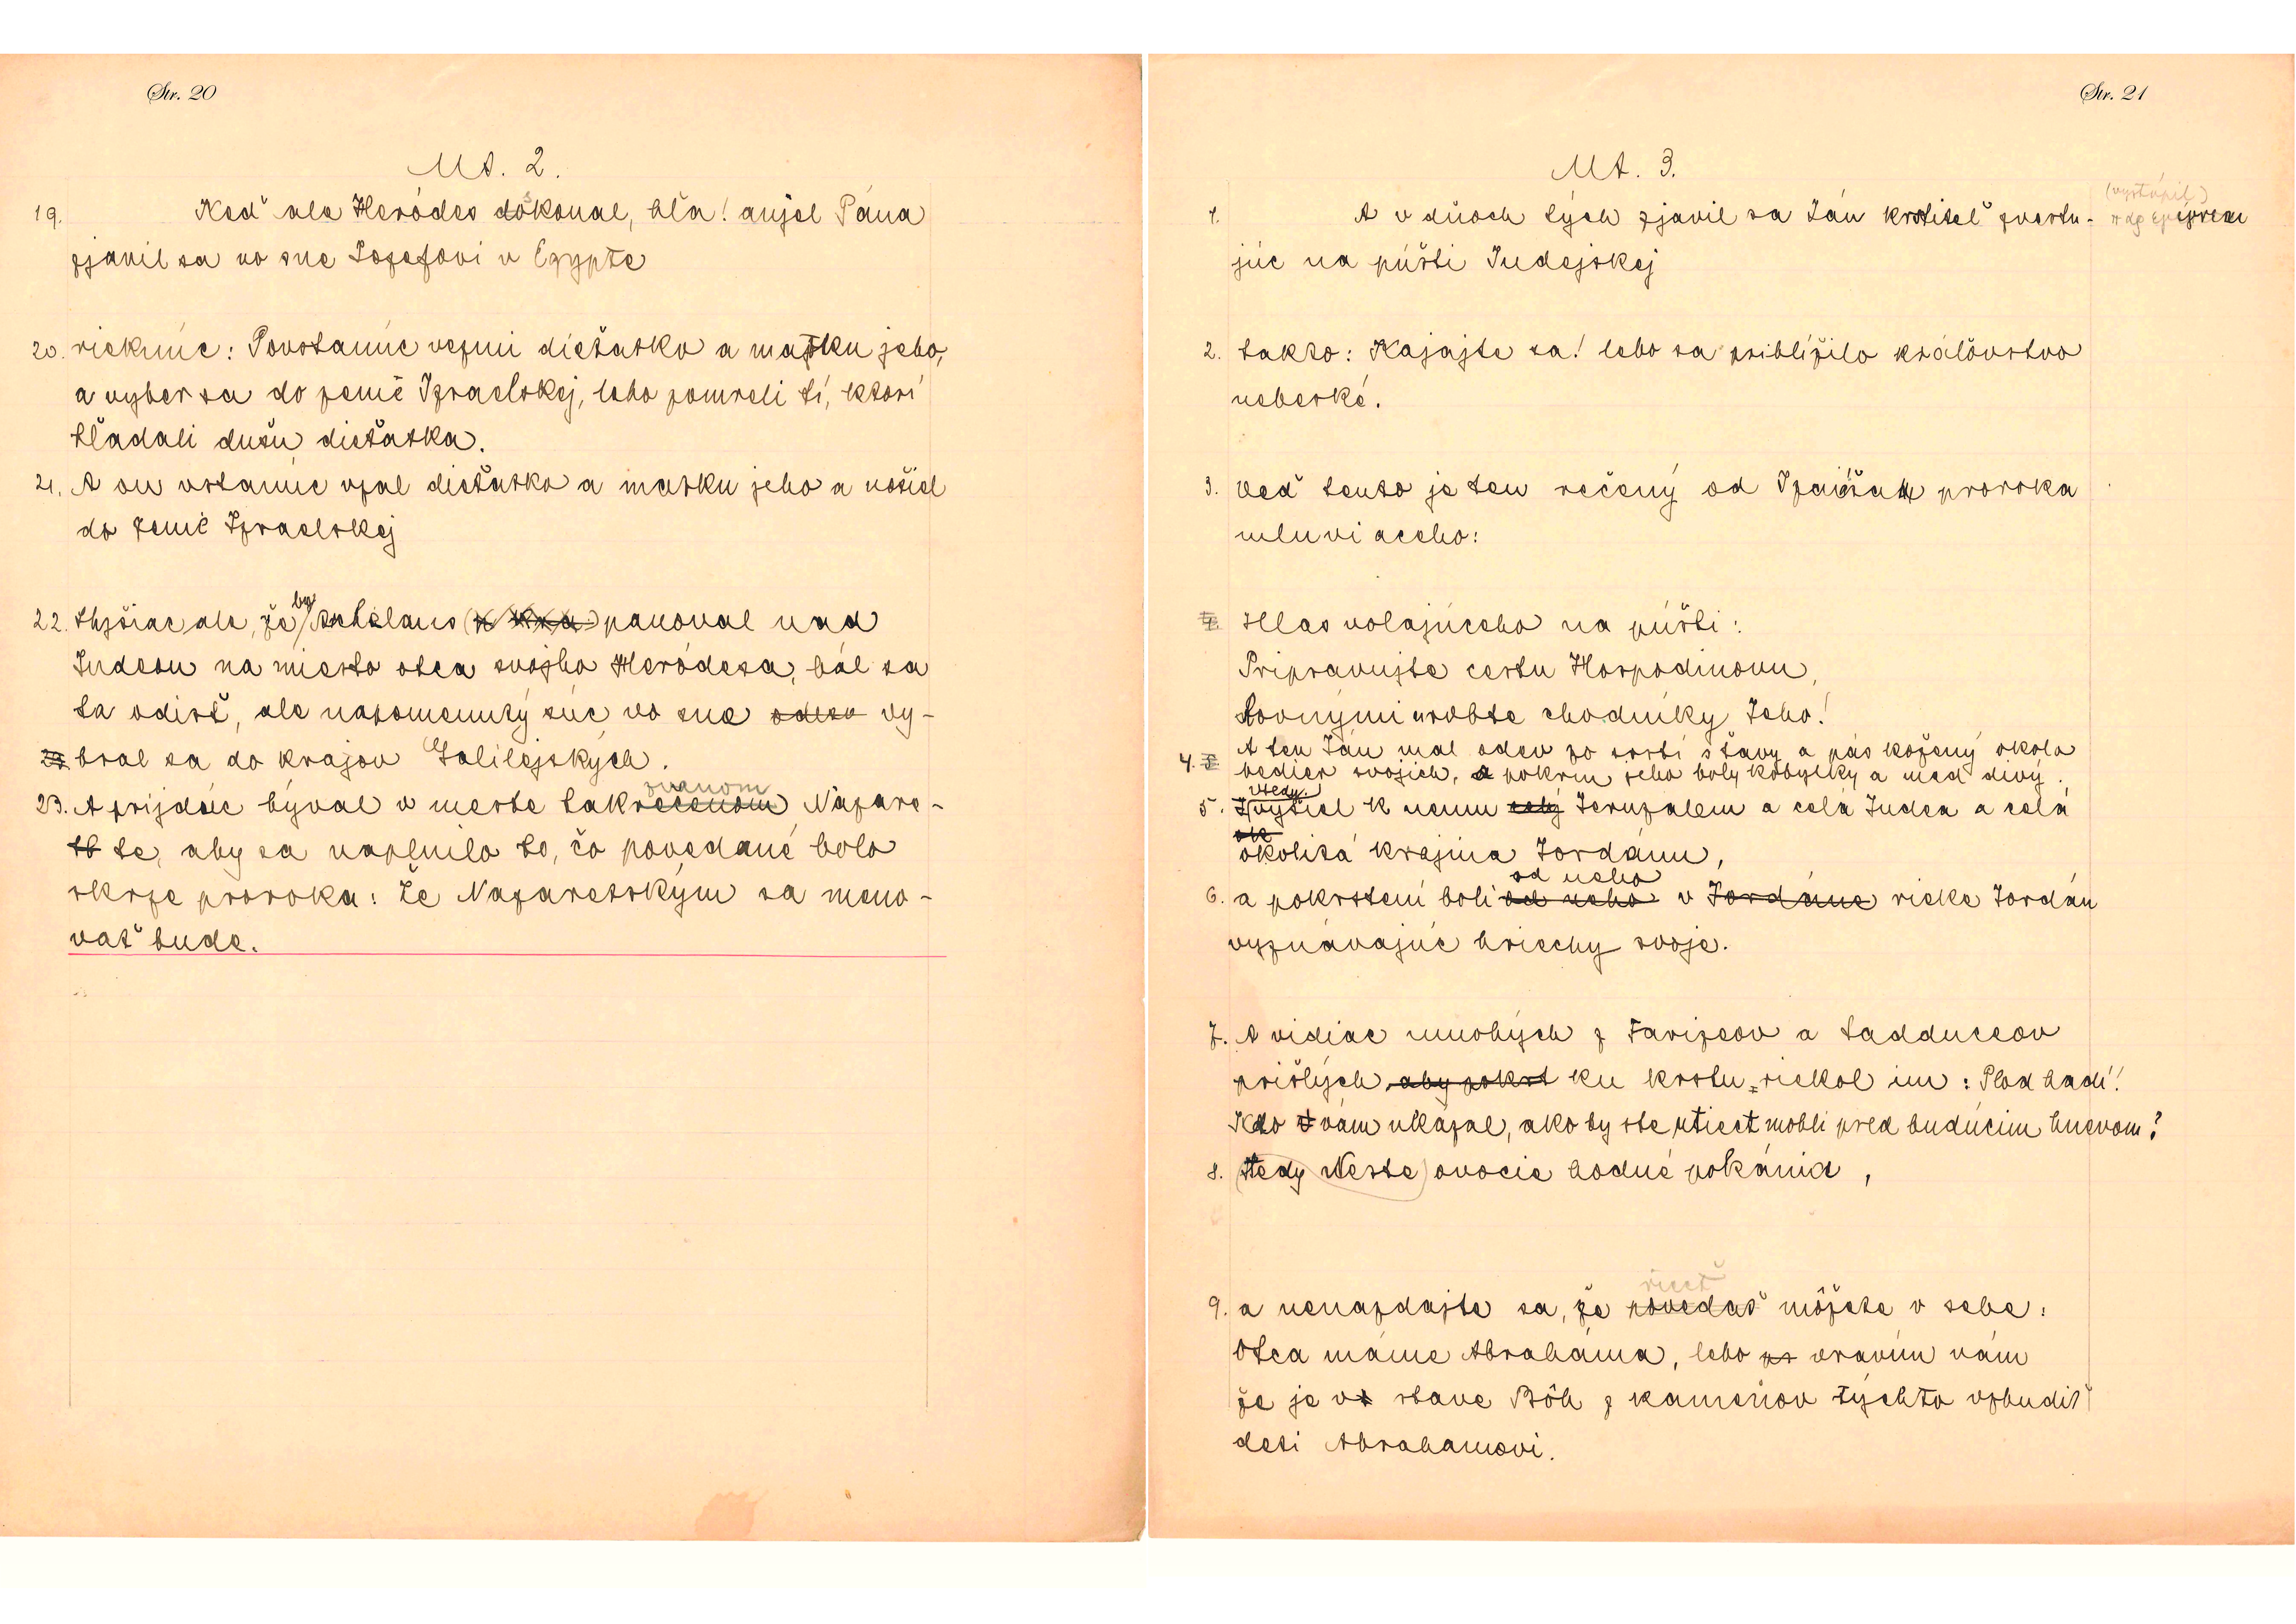 Str. 20
Mt. 2.
19. Keď ale Heródes dokonal, hľa! anjel Pána
zjavil sa vo sne Jozefovi v Egypte
20. rieknúc: Povstanúc vezmi dieťatko a matku jeho,
a vyber sa do zeme Izraelskej, lebo pomreli tí, ktorí
hľadali dušu dieťatka.
21. A on vstanúc vzal dieťatko a matku jeho a vošiel
do zeme Izraelskej
22. Slyšiac ale, že by Archelaus panoval nad
Judeou na miesto otca svojho Heródesa, bál sa
ta odísť, ale napomenutý súc vo sne odtia vy-
bral sa do krajov Galilejských.
zvanom
23. A prijdúc býval v meste takrečenom Nazare-
te, aby sa naplnilo to, čo povedané bolo
skrze proroka: Že Nazaretským sa meno-
vať bude.
Str. 21
Mt. 3.
(vystúpil)
1. A v dňoch tých zjavil sa Ján krstiteľ zvestu-
júc na púšti Judejskej
2. takto: Kajajte sa! lebo sa priblížilo kráľovstvo
nebeské.
3. Veď tento je ten rečený od Izaiáša proroka
mluviaceho:
Hlas volajúceho na púšti:
Pripravujte cestu Hospodinovu,
Rovnými urobte chodníky Jeho!
4. A ten Ján mal odev zo srsti ťavy a pás kožený okolo
bedier svojich, a pokrm jeho boly kobylky a med divý.
vtedy
5. vyšiel k nemu celý Jeruzalem a celá Judea a celá
ok
okolitá krajina Jordánu,
od neho
6. a pokrstení boli od neho v Jordáne rieke Jordán
vyznávajúc hriechy svoje.
7. A vidiac mnohých z Farizeov a Sadduceov
prišlých aby pokrst ku krstu, riekol im: Plod hadí!
Kto vám ukázal, ako by ste utiecť mohli pred budúcim hnevom?
8. tedy Neste) ovocie hodné pokánia,
riecť
9. a nenazdajte sa, že povedať môžete v sebe:
Otca máme Abraháma, lebo pr vravím vám
že je v stave Bôh z kameňov týchto vzbudiť
deti Abrahamovi.